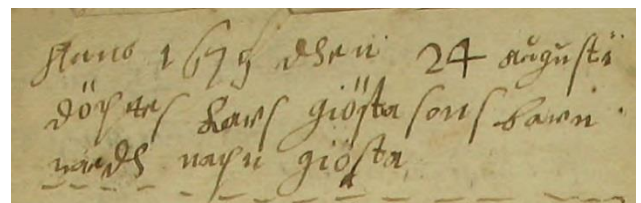 Anno 1675 dhen 24 Augusti
döptes Lars Giöstasons barn
medh napn Giösta